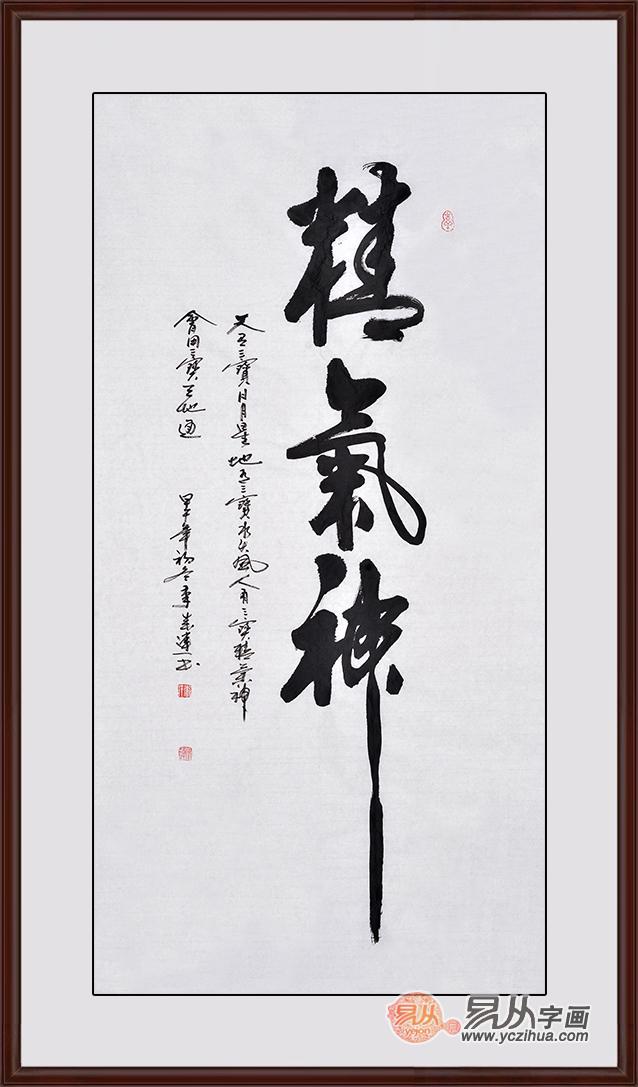 精氣神
天有三寶日月星地有三寶水火風人有三寶精氣神
會用三寶天地通
年初冬李成連書
易从字画
www.yczihua.com